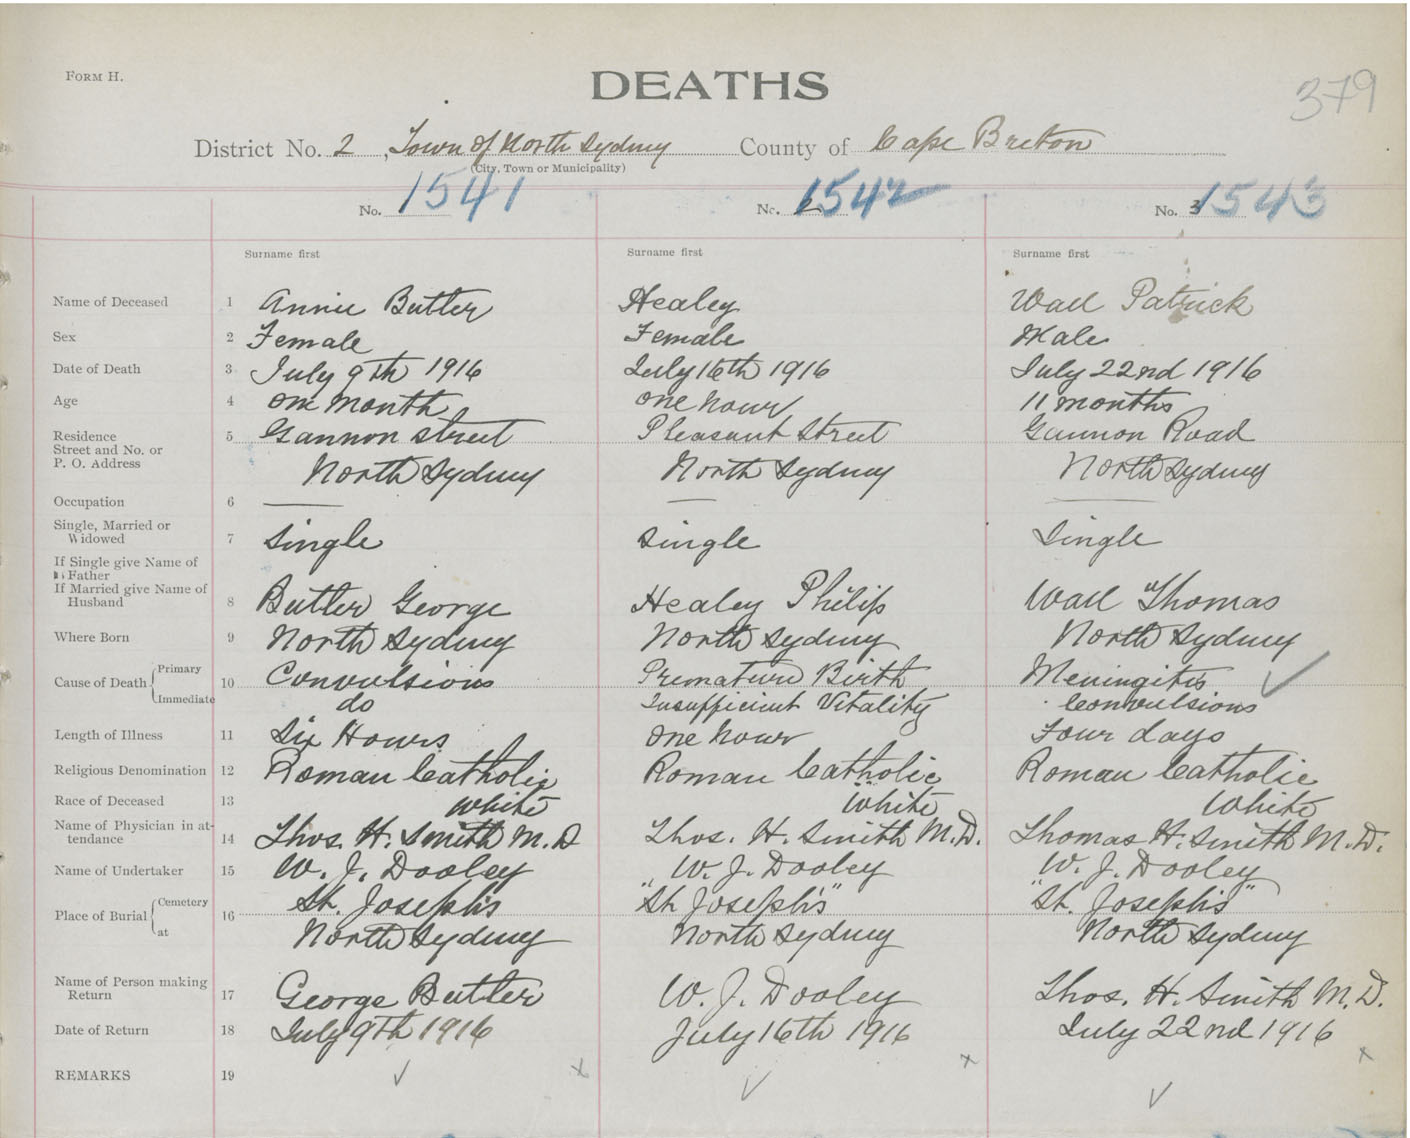 FORM H.
DEATHS
379
District No. 2, Town of North Sydney County of Cape Breton
(City, Town or Municipality)
No. 1541 No. 2 1542 No. 3 1543
Surname first Surname first Surname first
Name of Deceased 1 Annie Butler Healey Wall Patrick
Sex 2 Female Female Male
Date of Death 3 July 9th 1916 July 16th 1916 July 22nd 1916
Age 4 one month one hour 11 months
Residence 5 Gannon street Pleasant Street Gannon Road
Street and No. or
P. O. Address North Sydney North Sydney North Sydney
Occupation 6
Single, Married or
Widowed 7 Single Single Single
If Single give Name of
Father
If Married give Name of
Husband 8 Butler George Healey Philip Wall Thomas
Where Born 9 North Sydney North Sydney North Sydney
Cause of Death Primary 10 Convulsions Premature Birth Meningitis
Immediate do Insufficient Vitality Convulsions
Length of Illness 11 Six Hours one hour Four days
Religious Denomination 12 Roman Catholic Roman Catholic Roman Catholic
Race of Deceased 13 White White White
Name of Physician in at-
tendance 14 Thos. H. Smith M. D Thos. H. Smith M. D. Thomas H. Smith M. D.
Name of Undertaker 15 W. J. Dooley W. J. Dooley W. J. Dooley
Place of Burial Cemetery 16 St. Joseph's "St Joseph's" "St. Joseph's"
at North Sydney North Sydney North Sydney
Name of Person making
Return 17 George Butler W. J. Dooley Thos. H. Smith M. D.
Date of Return 18 July 9th 1916 July 16th 1916 July 22nd 1916
REMARKS 19